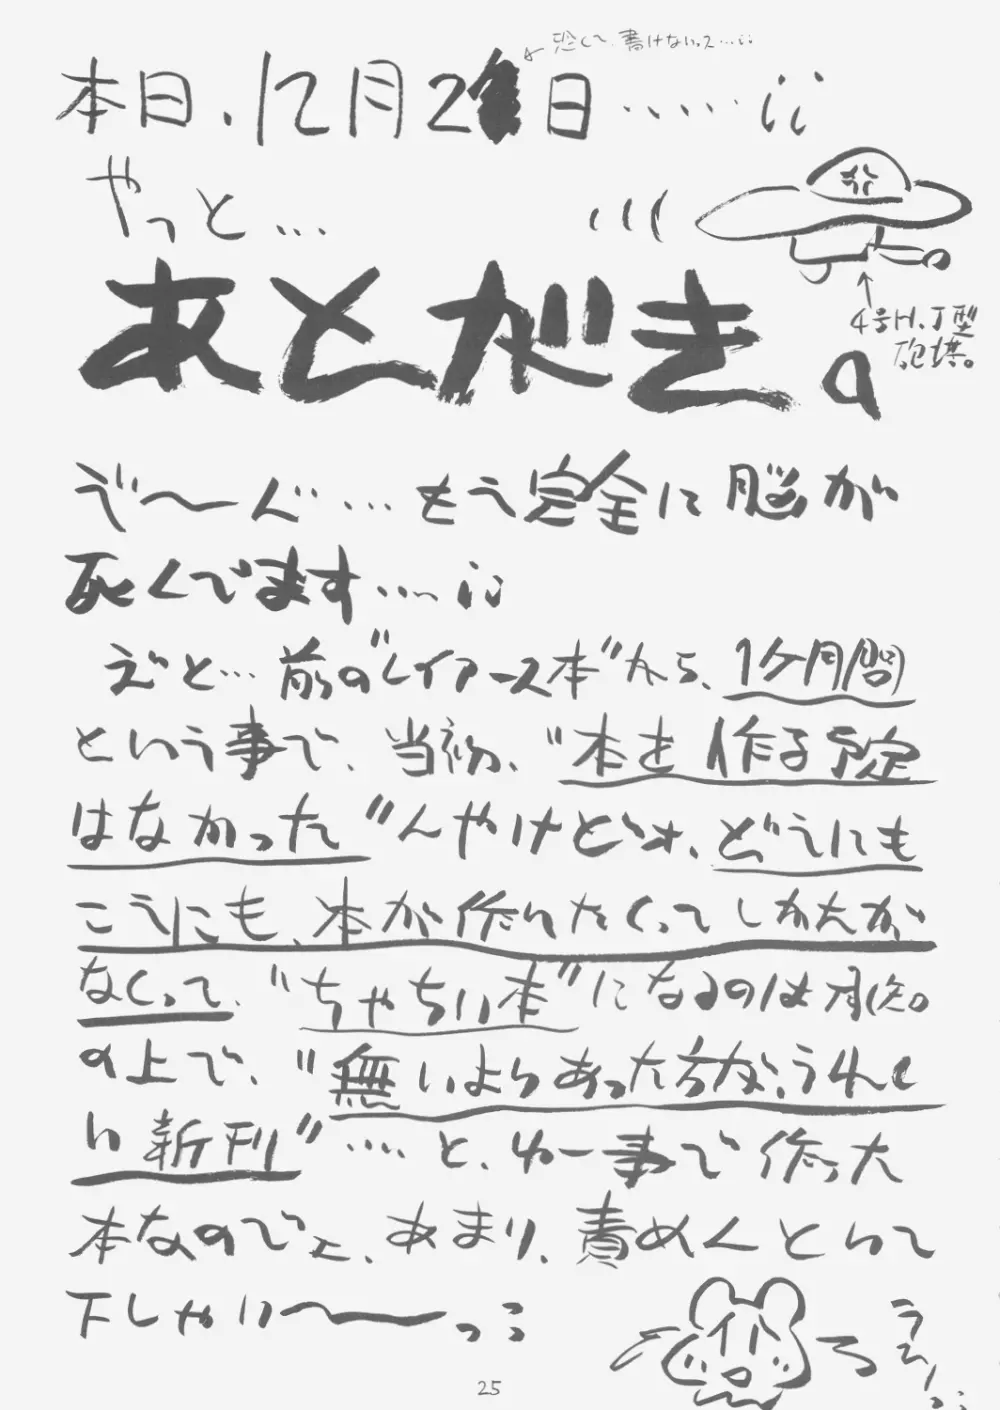 恐くて、書けないっス…;;
本日、12月2日……;;
やっと…
あとがき。
4号H.J型
砲塔。
で〜ん゛……もう完全に脳が
死んでます……;;
えと…前の"レイアース本"から、1ケ月間
という事で、当初、"本を作る予定
はなかった"んやけどォ、どうにも
こうにも、本が作りたくってしかたが
なくって、"ちゃちい本"になるのは承知。
の上で、"無いよりあった方が、うれし
い新刊"……と、ゆー事で作った
本なのでェ、あまり、責めんといて
下しゃい〜〜っ;;
25